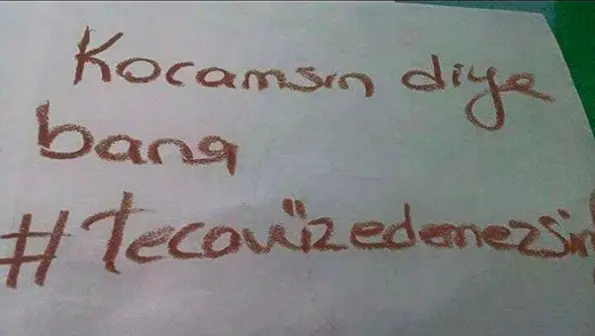 Kocamsın diye
bana
#tecavüzedemezsin